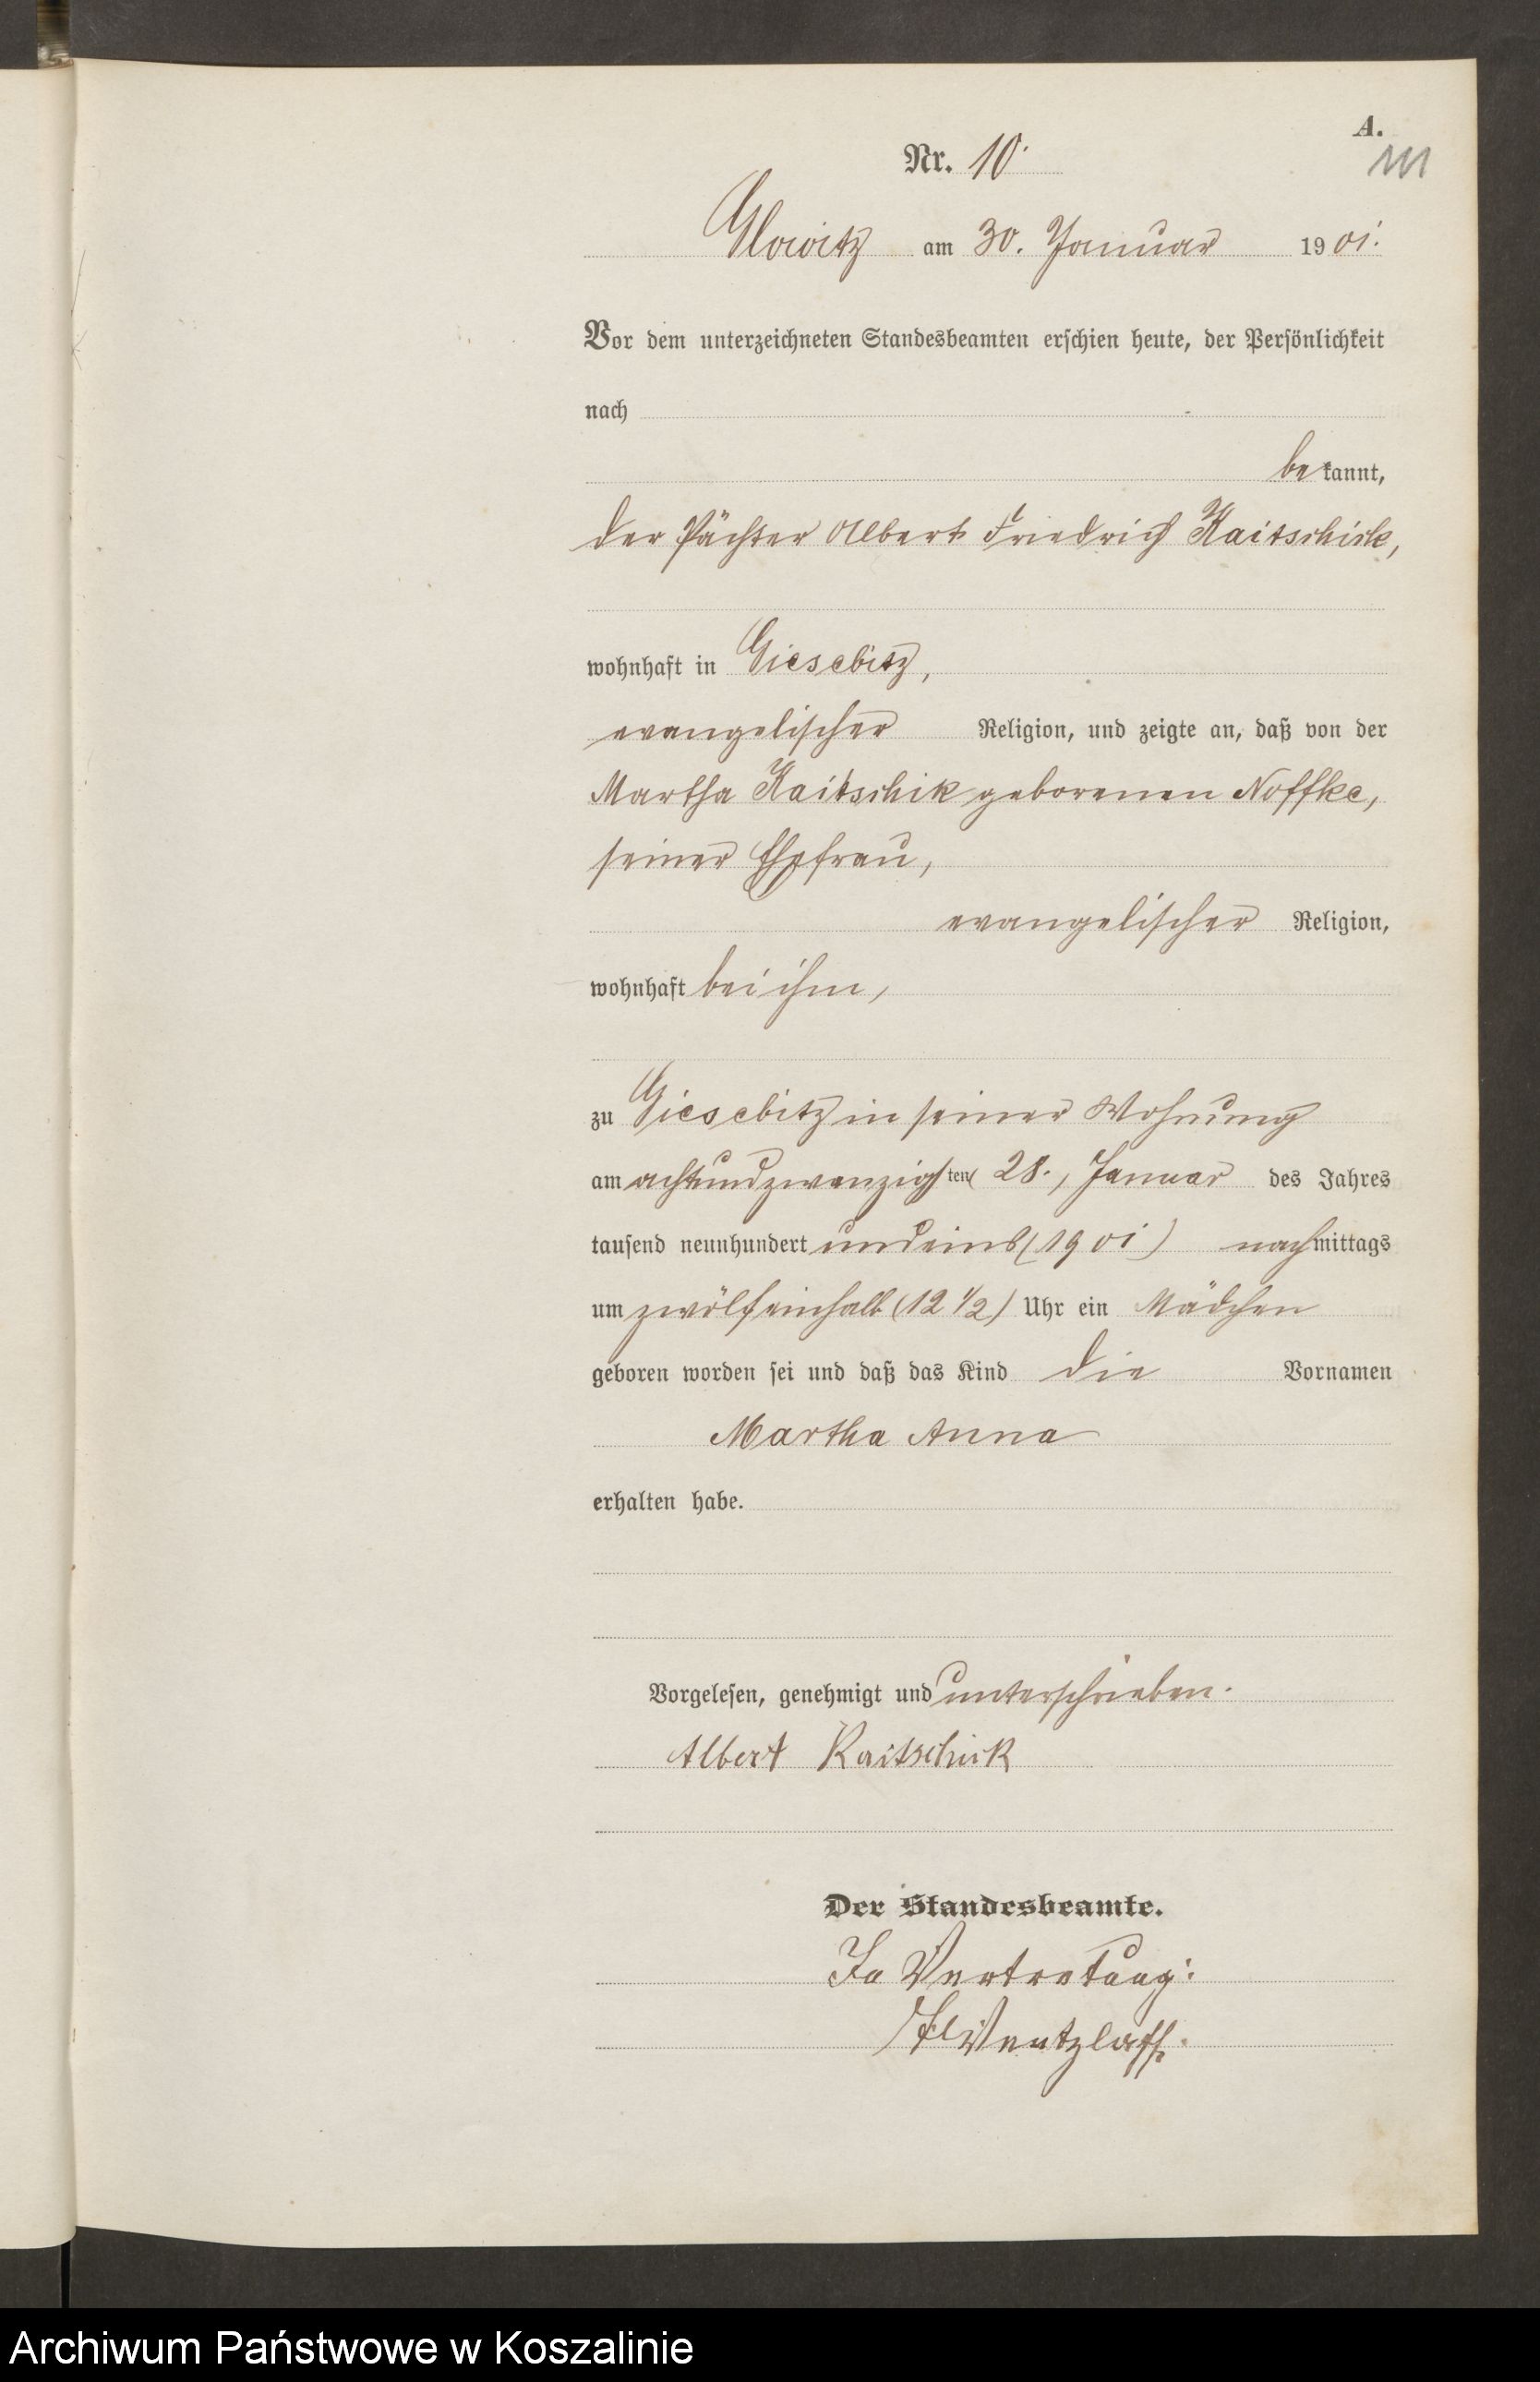 A.
111
Nr. 10.
Glowitz am 30. Januar 1901.
Vor dem unterzeichneten Standesbeamten erschien heute, der Persönlichkeit
nach
bekannt,
der Pächter Albert Friedrich Kaitschick,
wohnhaft in Giesebitz,
evangelischer Religion, und zeigte an, daß von der
Martha Kaitschik geborenen Noffke,
seiner Ehefrau,
evangelischer Religion,
wohnhaft bei ihm,
zu Giesebitz in seiner Wohnung
am achtundzwanzigsten (28.) Januar des Jahres
tausend neunhundert und eins (1901) nachmittags
um zwölfeinhalb (12 1/2) Uhr ein Mädchen
geboren worden sei und daß das Kind die Vornamen
Martha Anna
erhalten habe.
Vorgelesen, genehmigt und unterschrieben.
Albert Kaitschick
Der Standesbeamte.
In Vertretung:
Wentzlaff.
Archiwum Państwowe w Koszalinie